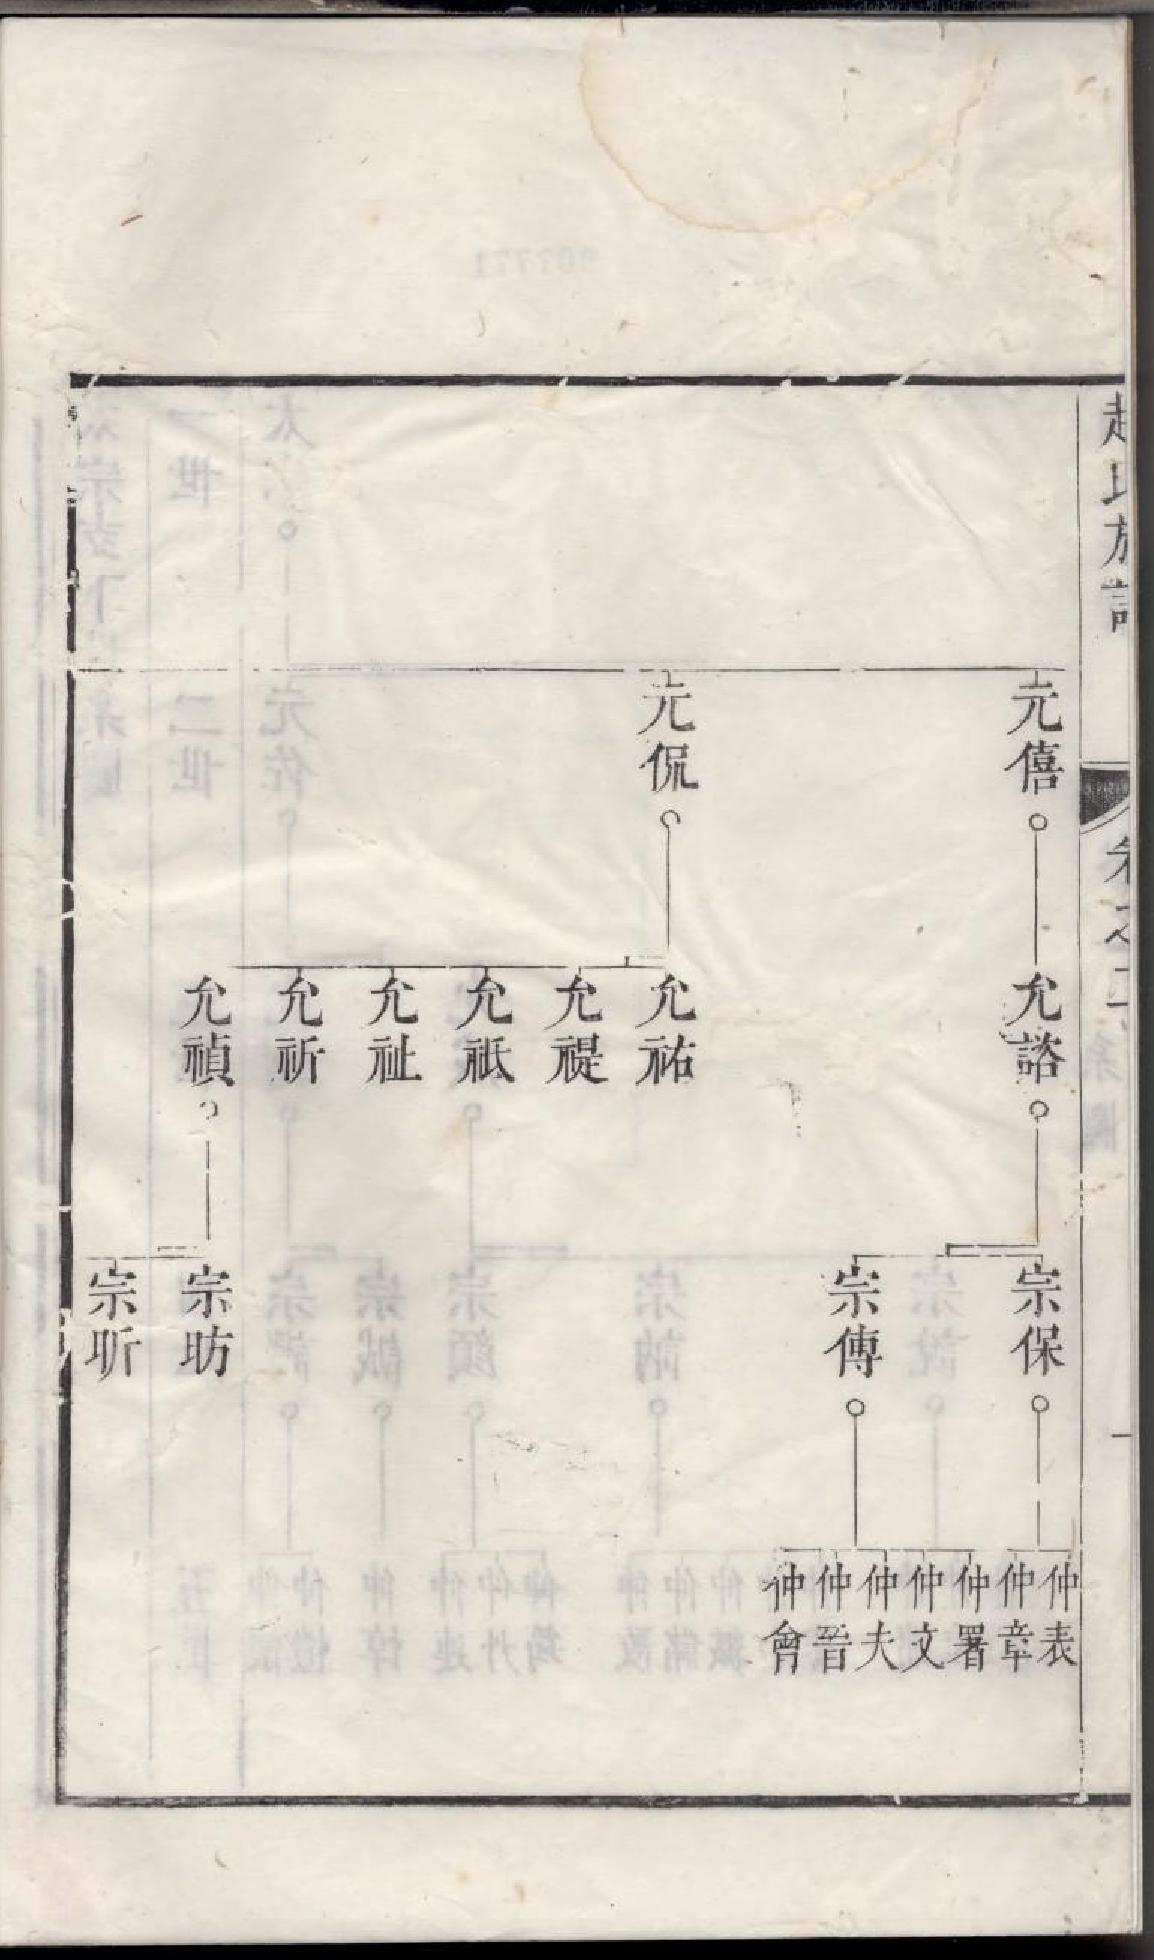 趙氏族譜
卷之二
元僖
元侃
允諮
允祐
允禔
允祇
允祉
允祈
允禎
宗保
宗傅
宗昉
宗昕
仲表
仲章
仲署
仲文
仲夫
仲晉
仲會